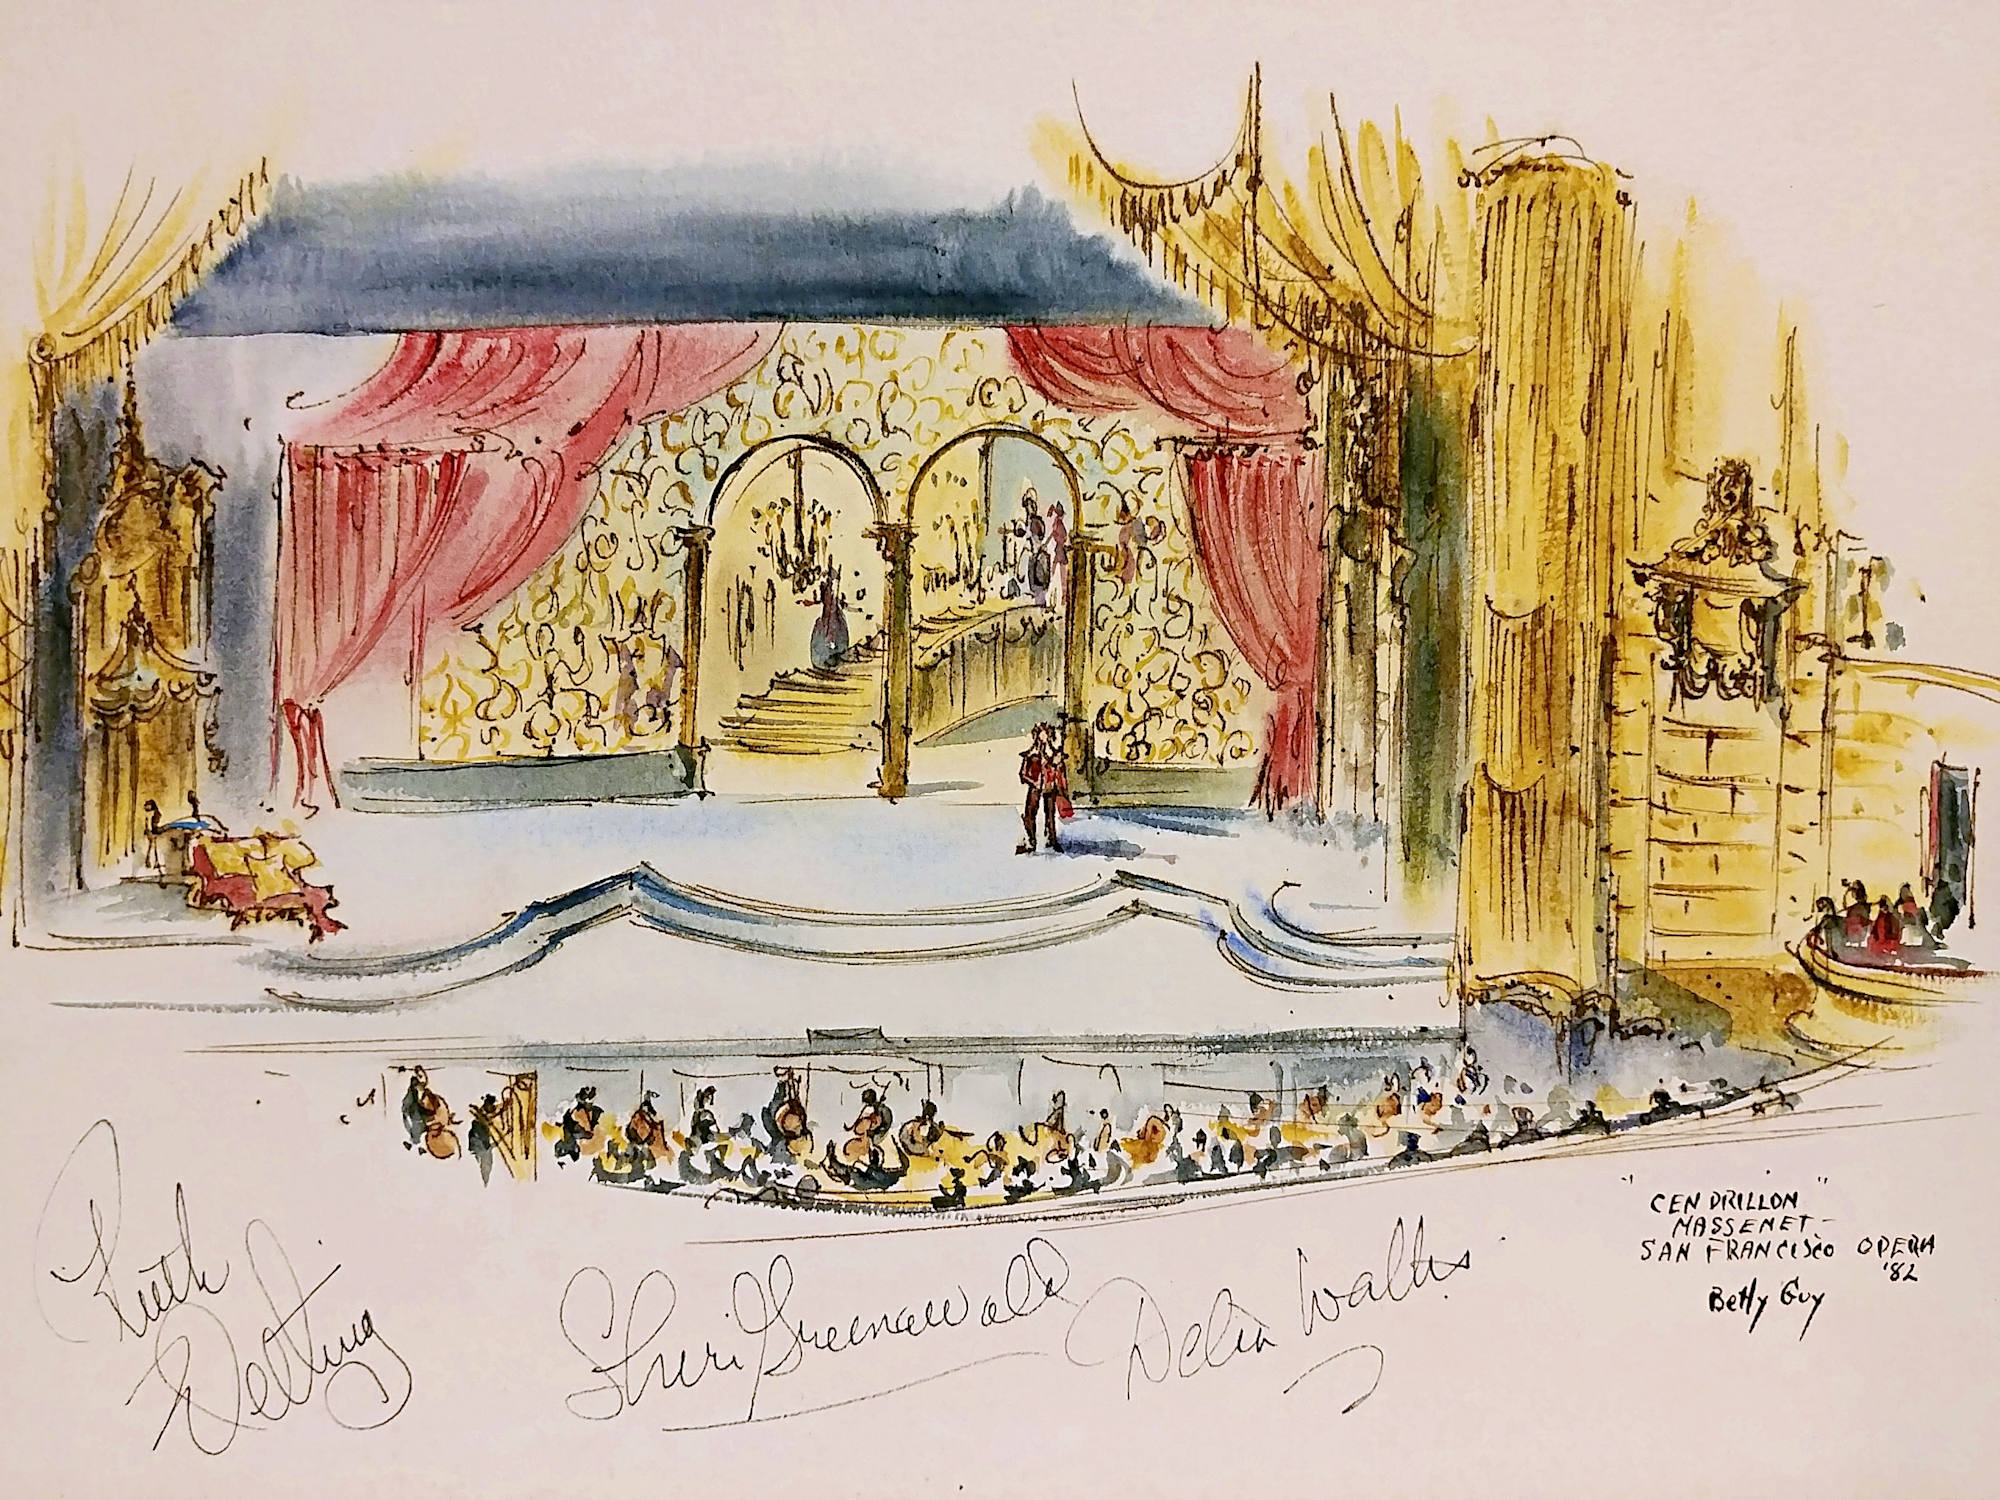 "CENDRILLON"
MASSENET -
SAN FRANCISCO OPERA
'82
Betty Guy
Ruth
Welting
Sheri Greenawald
Delia Wallis